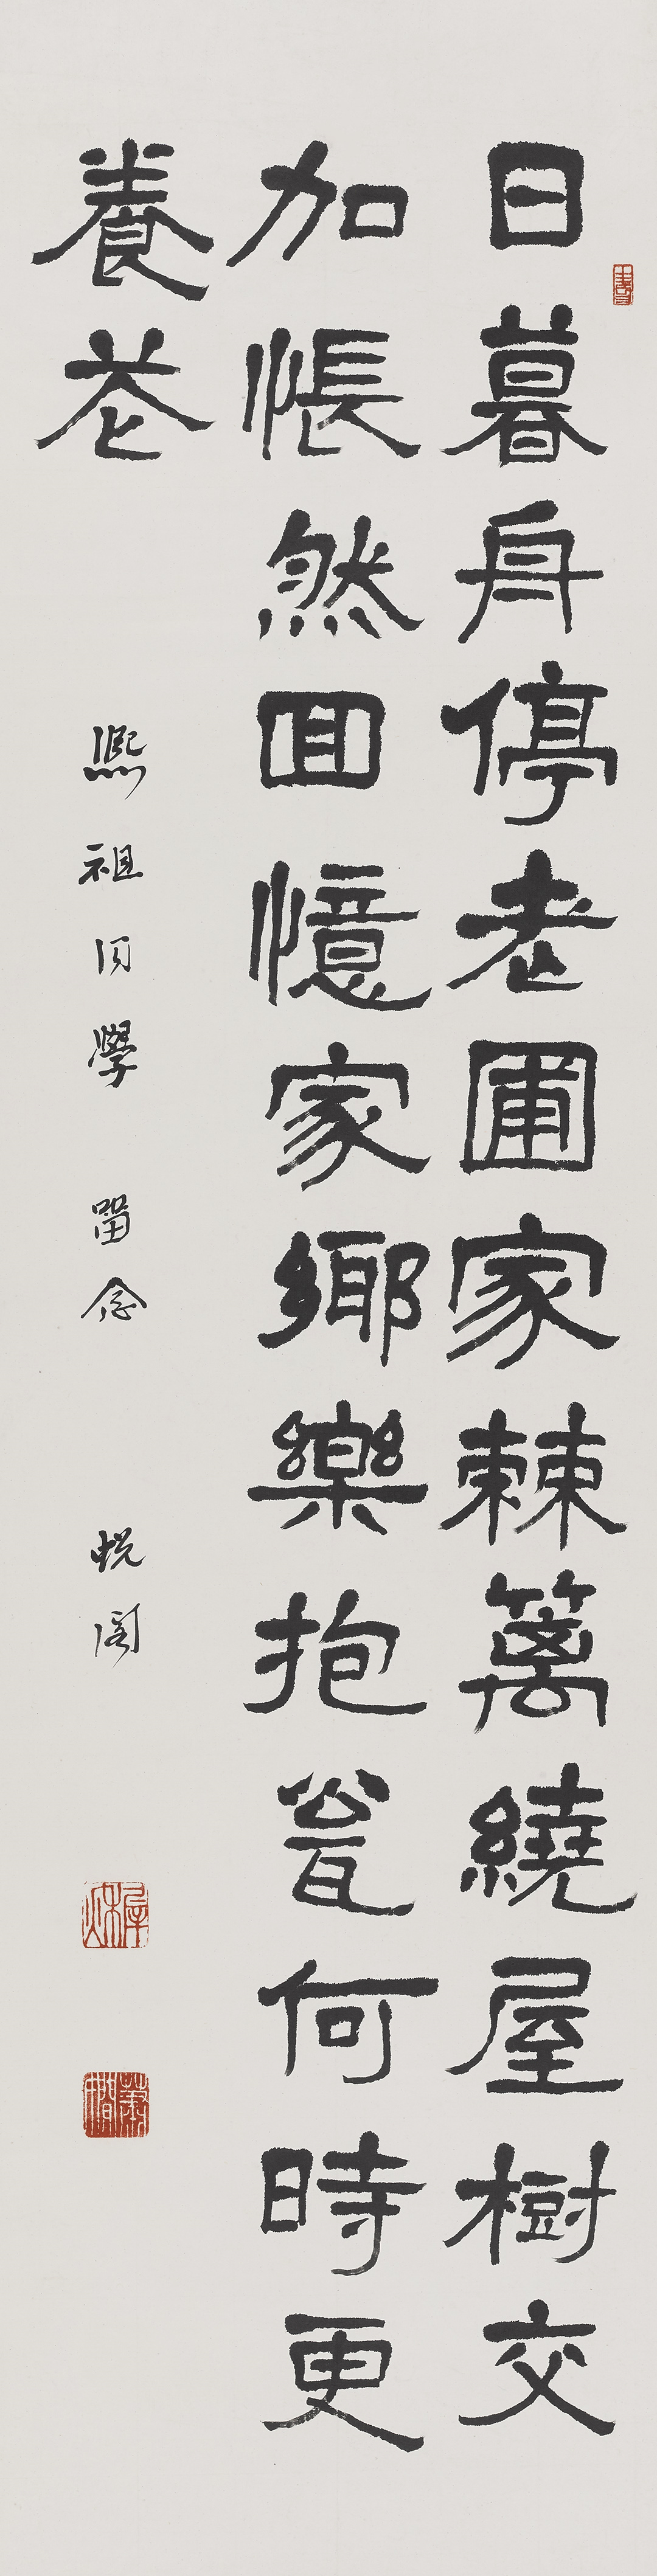 日暮舟停老圃家棘籬繞屋樹交
加悵然回憶家鄉樂抱瓮何時更
養花
熙祖同學 留念 蛻闇